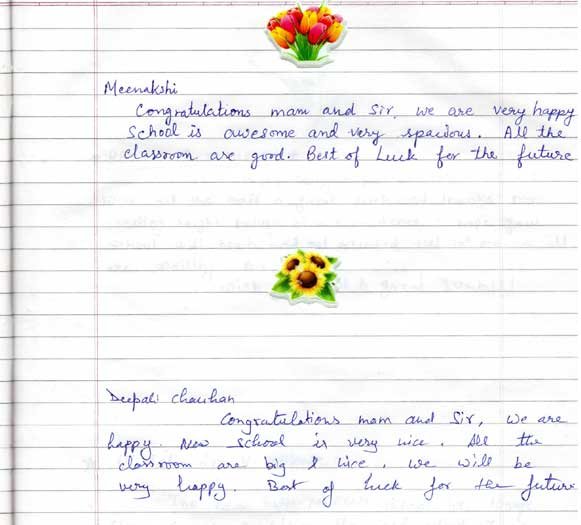 Meenakshi
Congratulations mam and Sir, we are very happy
School is awesome and very spacious. All the
classroom are good. Best of Luck for the future
Deepali Chauhan
Congratulations mam and Sir, we are
happy. New School is very nice. All the
classroom are big & nice, we will be
very happy. Best of luck for the future